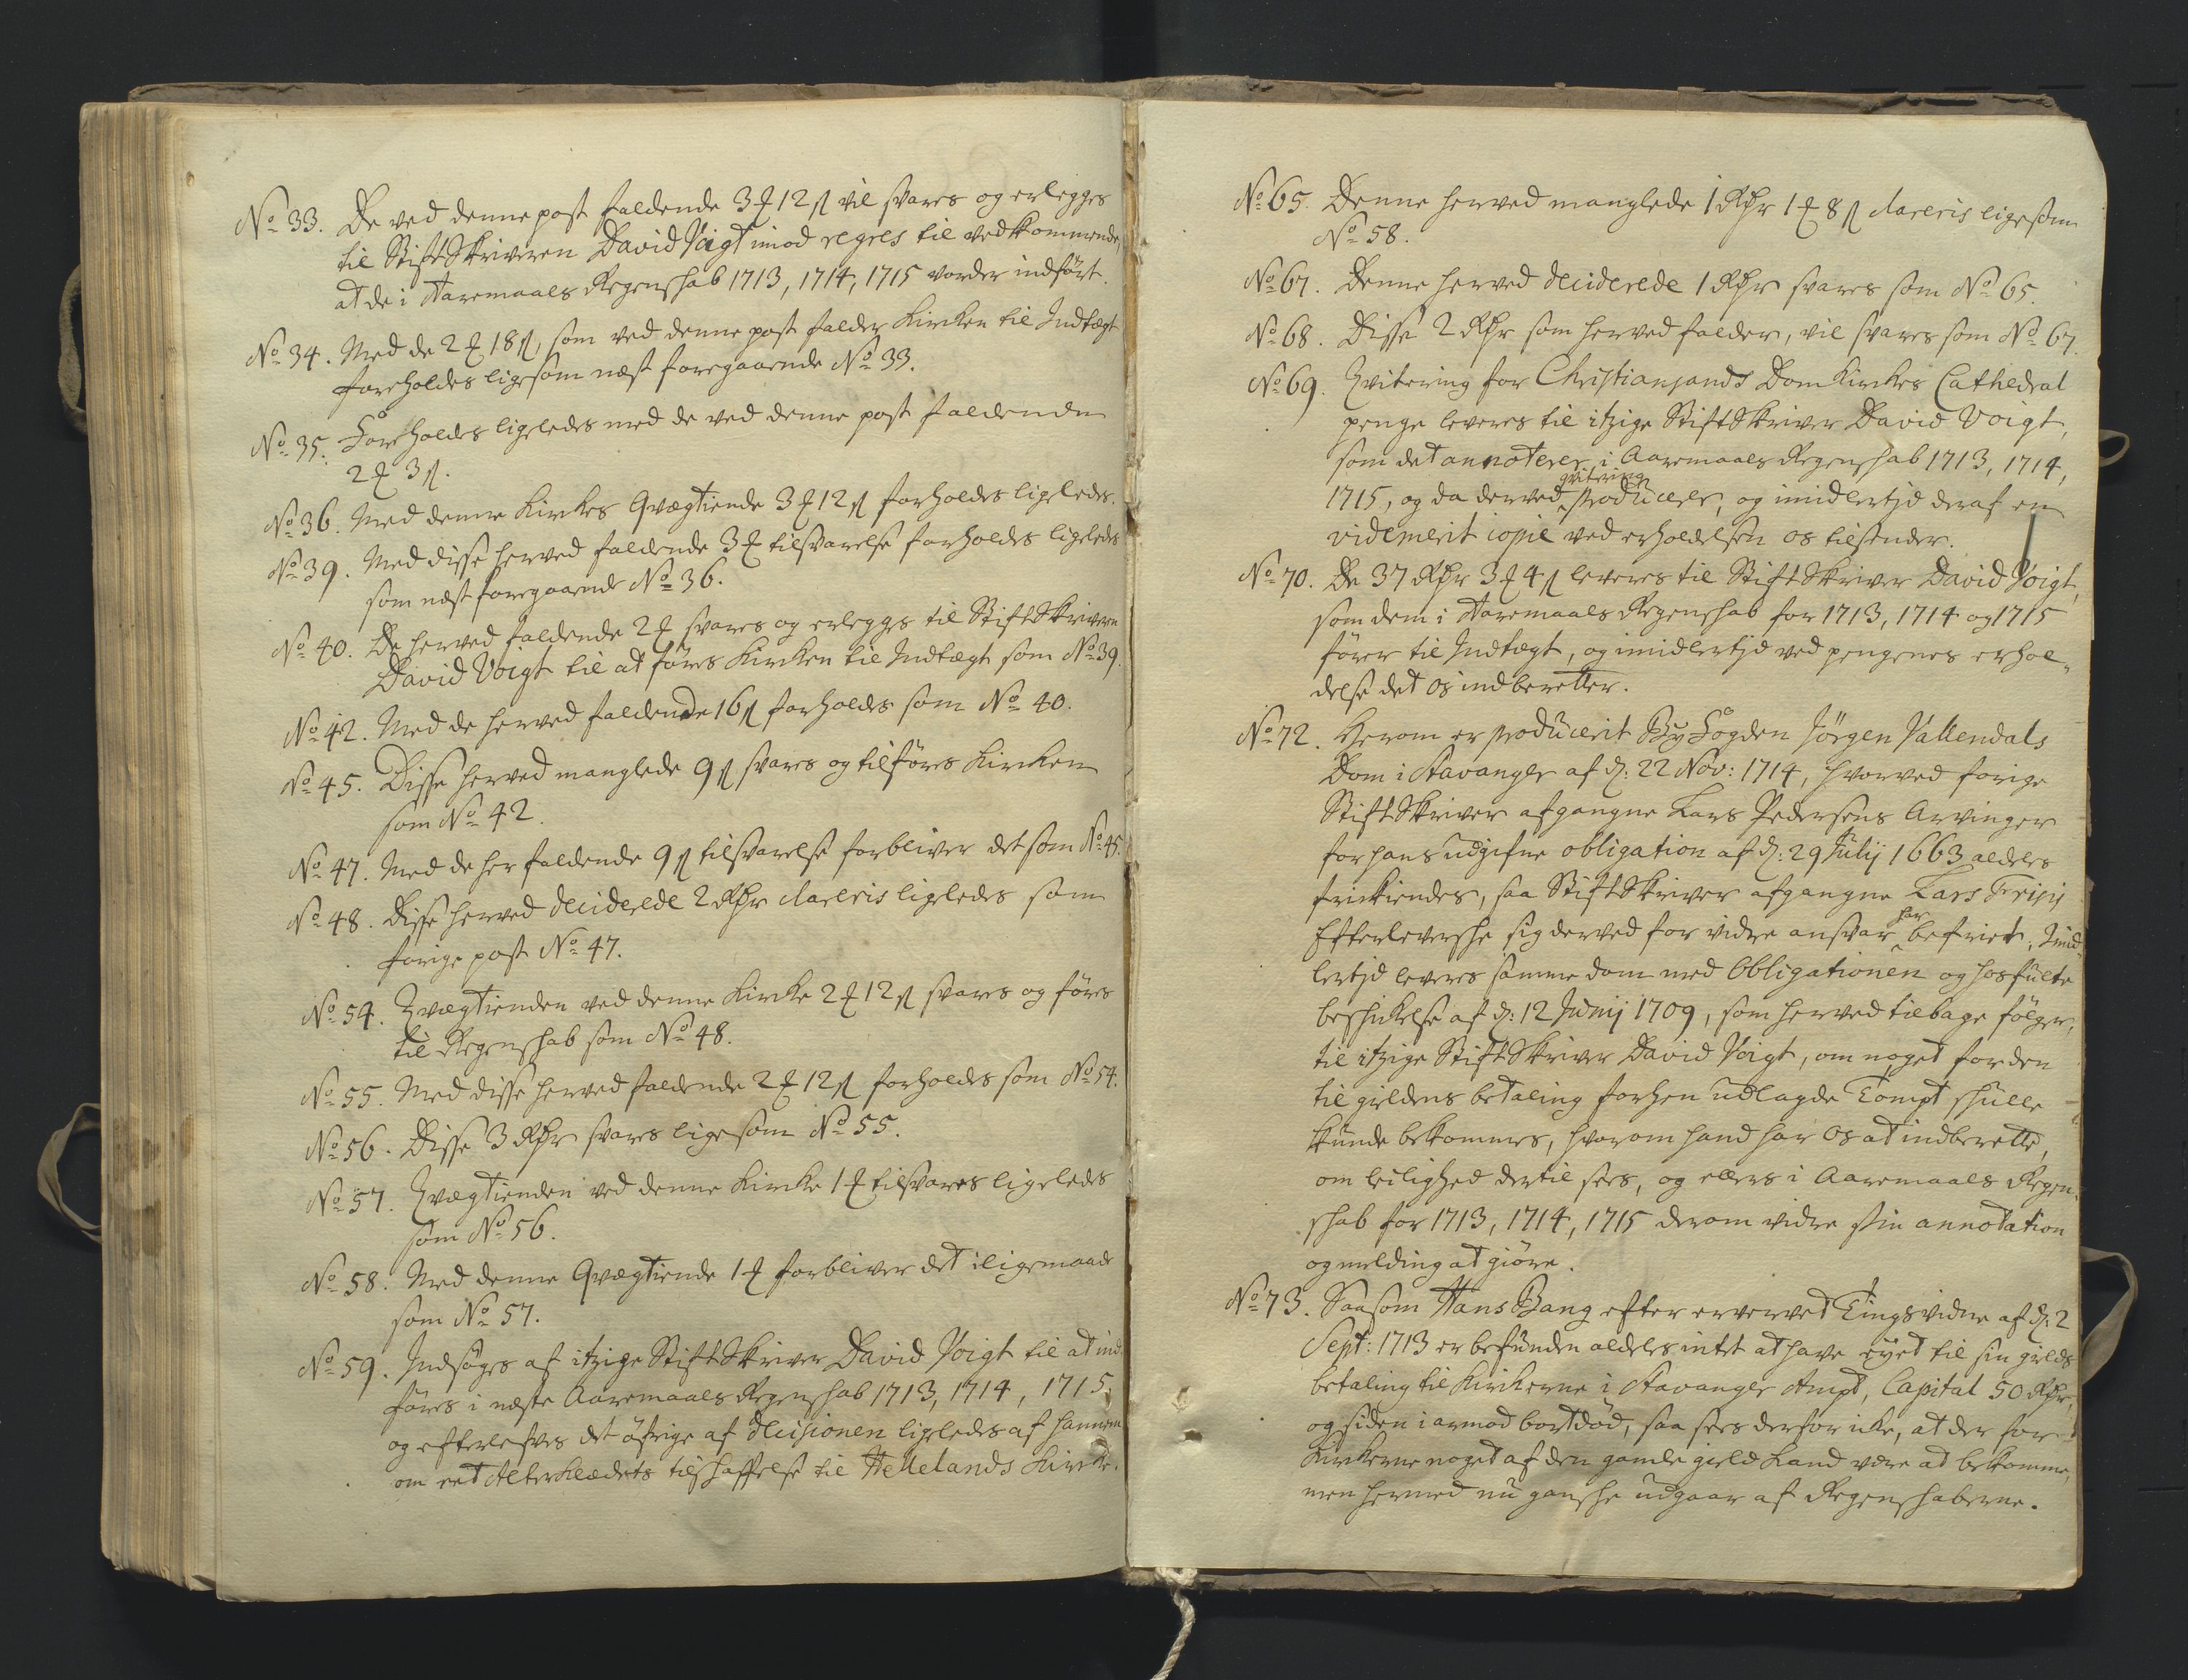 No 33. De ved denne post faldende 3 ₰ 12 ß vil svares og erlegges
til StiftSkriveren David Voigt imod regres til vedkommende,
at de i Aaremaals Regenskab 1713, 1714, 1715 vorder indført.
No 34. Med de 2 ₰ 18 ß, som ved denne post falder Kirken til Indtægt
forholdes ligesom næst foregaaende No 33.
No 35. Forholdes ligeledes med de ved denne post faldende
2 ₰ 3 ß.
No 36. Med denne Kirkes Qvægtiende 3 ₰ 12 ß forholdes ligeledes.
No 39. Med disse herved faldende 3 ₰ tilsvarelse forholdes ligeledes
som næst foregaaende No 36.
No 40. De herved faldende 2 ₰ svares og erlegges til StiftSkriveren
David Voigt til at føres Kirken til Indtægt som No 39.
No 42. Med de herved faldende 16 ß forholdes som No 40.
No 45. Disse herved manglede 9 ß svares og tilføres Kirken
som No 42.
No 47. Med de her faldende 9 ß tilsvarelse forbliver det som No 45.
No 48. Disse herved deciderede 2 Rdr clareris ligeledes som
forige post No 47.
No 54. Qvægtienden ved denne Kirke 2 ₰ 12 ß svares og føres
til Regenskab som No 48.
No 55. Med disse herved faldende 2 ₰ 12 ß forholdes som No 54.
No 56. Disse 3 Rdr svares ligesom No 55.
No 57. Qvægtienden ved denne Kirke 1 ₰ tilsvares ligeledes
som No 56.
No 58. Med denne Qvægtiende 1 ₰ forbliver det i ligemaade
som No 57.
No 59. Indsøges af itzige StiftSkriver David Voigt til at ind-
føres i neste Aaremaals Regenskab 1713, 1714, 1715,
og efterlefves det øfrige af decisionen ligeledes af hannem
om eet Alterklædets tilskaffelse til Hellelands Kirke.
No 65. Denne herved manglede 1 Rdr 1 ₰ 8 ß clareris ligesom
No 58.
No 67. Denne herved deciderede 1 Rdr svares som No 65.
No 68. Disse 2 Rdr som herved falder, vil svares som No 67.
No 69. Qvitering for Christiansands DomKirkes Cathedral
penge leveres til itzige StiftSkriver David Voigt,
som det annoterer i Aaremaals Regenskab 1713, 1714,
1715, og da derved qvitering producerer, og imidlertid deraf en
videmerit copie ved erholdelsen os tilsender.
No 70. De 37 Rdr 3 ₰ 4 ß leveres til StiftSkriver David Voigt,
som dem i Aaremaals Regenskab for 1713, 1714 og 1715
fører til Indtægt, og imidlertid ved pengenes erhol-
delse det os indberetter.
No 72. Herom er producerit ByFogden Jørgen Vallendals
Dom i Stavanger af d: 22 Nov: 1714, hvorved forige
StiftSkriver afgangne Lars Pedersens Arvinger
for hans udgifne obligation af d: 29 Julij 1663 aldeles
frikiendes, saa StiftSkriver afgangne Lars Frisis
Efterleverske sig derved for vidre ansvar har befriet, Imid-
lertid leveres samme dom med Obligationen og hosfulte
beskikelse af d: 12 Junij 1709, som herved tilbage følger,
til itzige StiftSkriver David Voigt, om noget for den
til gieldens betaling forhen udlagde Tompt skulle
kunde bekommes, hvorom hand har os at indberette,
om leilighed dertil sees, og ellers i Aaremaals Regen-
skab for 1713, 1714, 1715 derom vidre sin annotation
og melding at giøre.
No 73. Saasom Hans Bang efter erververt Tingsvidne af d: 2
Sept: 1713 er befunden aldeles intet at have eyet til sin gields
betaling til Kirkerne i Stavanger Ampt, Capital 50 Rdr,
og siden i armod bortdød, saa sees derfor icke, at der for
Kirkerne noget af den gamle gield kand være at bekomme,
men hermed nu ganske udgaar af Regenskaberne.